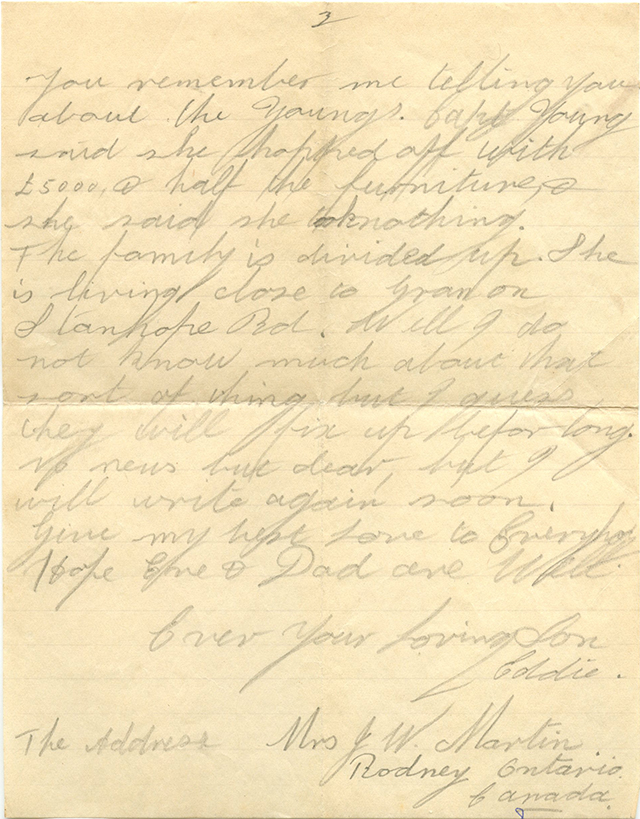 3
You remember me telling you
about the Youngs. Capt Young
said she hopped off with
£5000, & half the furniture, &
she said she nothing.
The family is divided up. She
is living close to Gran on
Stanhope Rd. Well I do
not know much about that
sort of thing but I guess
they will fix up befor long.
No news but dear, but I
will write again soon.
Give my best love to Everyone
Hope & Dad are Well.
Ever Your Loving Son
Eddie.
The Address Mrs J W. Martin
Rodney Ontario.
Canada.